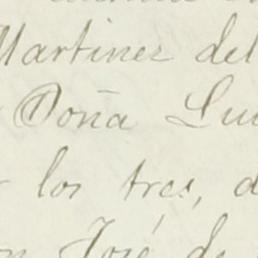 Martinez del
Doña
los tres,
José de